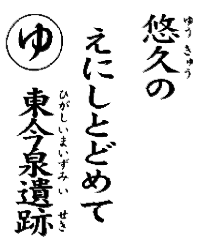 悠久の
えにしとどめて
東今泉遺跡
ゆ
ゆうきゅう
ひがしいまいずみいせき